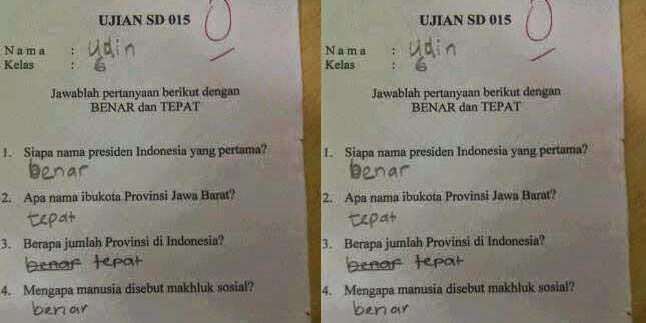 UJIAN SD 015
0
Nama : Udin
Kelas : 6
Jawablah pertanyaan berikut dengan
BENAR dan TEPAT
1. Siapa nama presiden Indonesia yang pertama?
benar
2. Apa nama ibukota Provinsi Jawa Barat?
tepat
3. Berapa jumlah Provinsi di Indonesia?
benar tepat
4. Mengapa manusia disebut makhluk sosial?
benar
UJIAN SD 015
0
Nama : Udin
Kelas : 6
Jawablah pertanyaan berikut dengan
BENAR dan TEPAT
1. Siapa nama presiden Indonesia yang pertama?
benar
2. Apa nama ibukota Provinsi Jawa Barat?
tepat
3. Berapa jumlah Provinsi di Indonesia?
benar tepat
4. Mengapa manusia disebut makhluk sosial?
benar